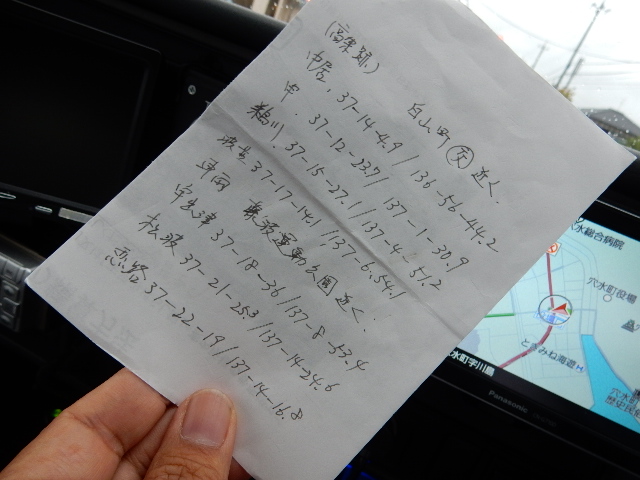 (高架跡)
白山町 ㊋近く.
中居. 37-14-4.9/136-56-44.2
甲. 37-12-23.7/137-1-30.9
鵜川. 37-15-27.1/137-4-51.2
波並 37-17-14.1/137-6.54.1
矢波運動公園近く.
宇出津 37-18-36/137-8-53.4
松波 37-21-25.3/137-14-24.6
恋路 37-22-19/137-14-16.8
穴水総合病院
穴水町役場
とさみね海遊
穴水町字川島
穴水町
歴史民
Panasonic